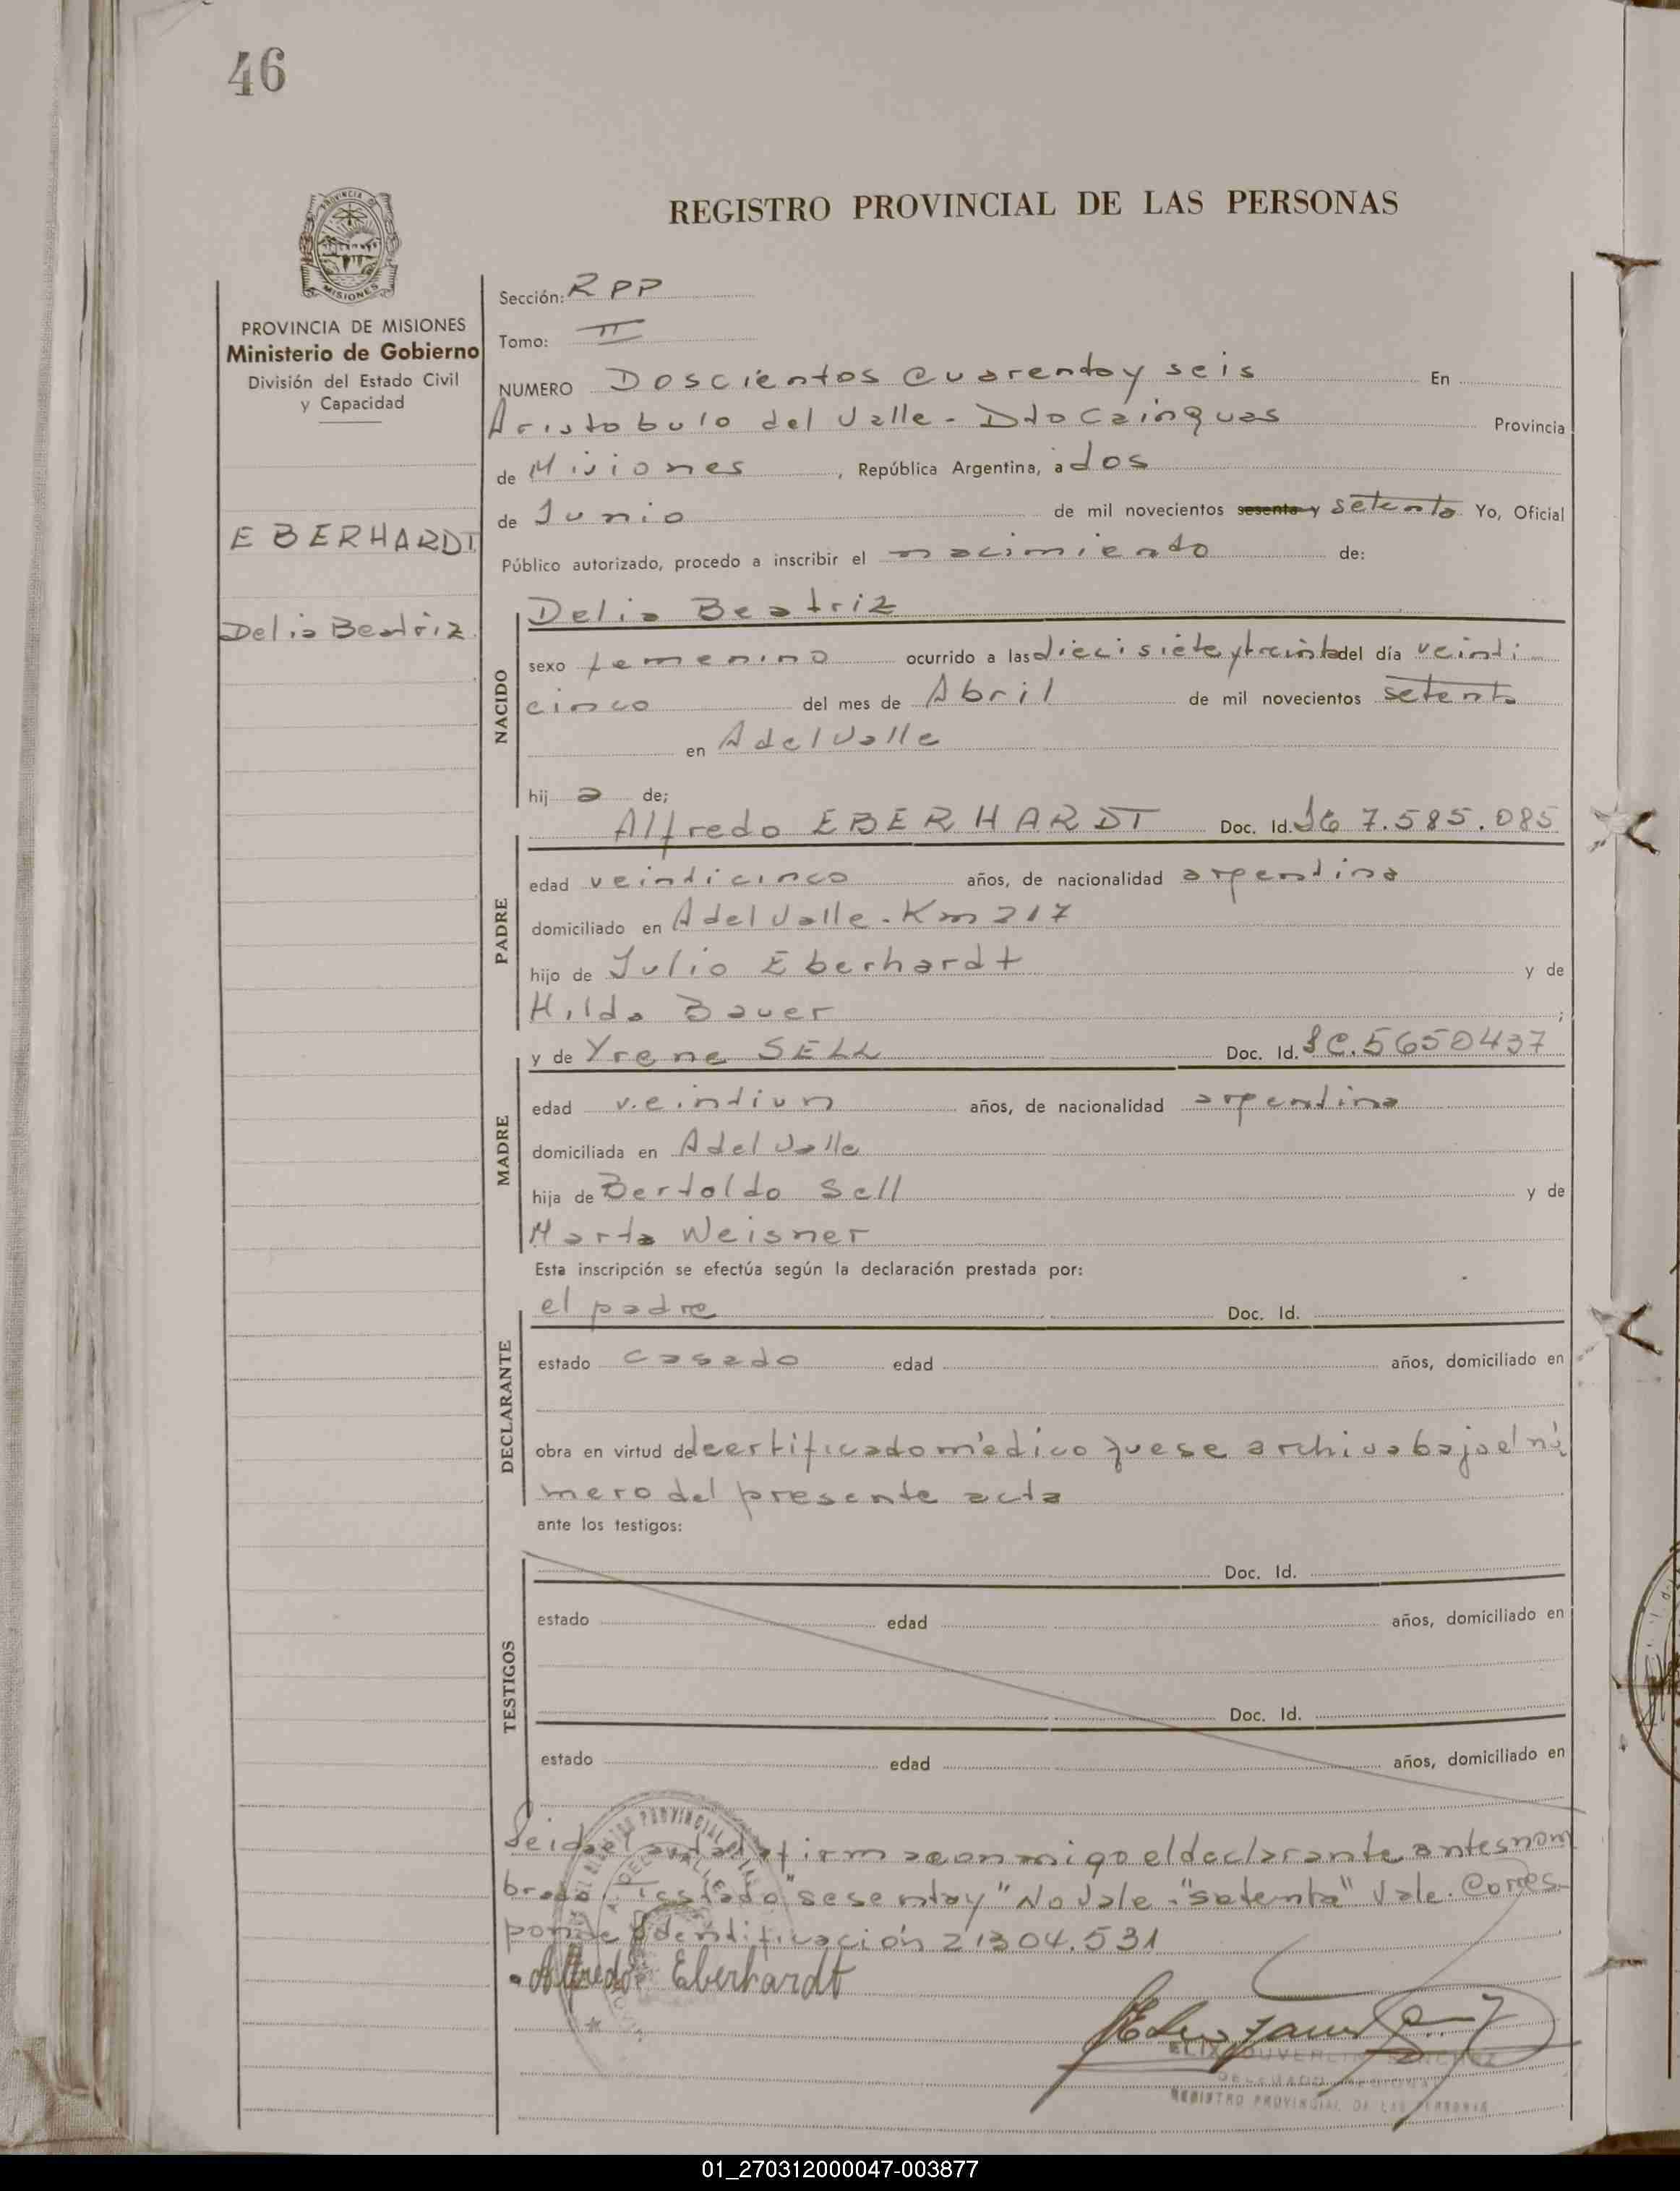 46
PROVINCIA DE
MISIONES
REGISTRO PROVINCIAL DE LAS PERSONAS
PROVINCIA DE MISIONES
Ministerio de Gobierno
División del Estado Civil
y Capacidad
EBERHARDT
Delia Beatriz
Sección: RPP
Tomo: II
NUMERO Doscientos cuarenta y seis En
Aristobulo del Valle - Dto Cainguas Provincia
de Misiones, República Argentina, a dos
de Junio de mil novecientos sesenta y setenta Yo, Oficial
Público autorizado, procedo a inscribir el nacimiento de:
NACIDO
Delia Beatriz
sexo femenino ocurrido a las dieci siete y treinta del día veinti
cinco del mes de Abril de mil novecientos setenta
en A del Valle
hij a de;
PADRE
Alfredo EBERHARDT Doc. Id. 7.585.085
edad veinticinco años, de nacionalidad argentina
domiciliado en A del Valle - Km 217
hijo de Julio Eberhardt y de
Hilda Bauer ;
MADRE
y de Yrene SELL Doc. Id. LC. 5650437
edad veintiun años, de nacionalidad argentina
domiciliada en A del Valle
hija de Bertoldo Sell y de
Marta Weisner
Esta inscripción se efectúa según la declaración prestada por:
DECLARANTE
el padre Doc. Id.
estado casado edad años, domiciliado en
obra en virtud de certificado médico que se archiva bajo el nú
mero del presente acta
ante los testigos:
TESTIGOS
Doc. Id.
estado edad años, domiciliado en
Doc. Id.
estado edad años, domiciliado en
Leida el acta la firma con migo el declarante antes nom
brado. Testado "sesentay" No Vale - "setenta" Vale. Corres-
ponde Identificación 21304.531
Alfredo Eberhardt
SANCHEZ
DELEGADO REGIONAL
REGISTRO PROVINCIAL DE LAS PERSONAS
01_270312000047-003877